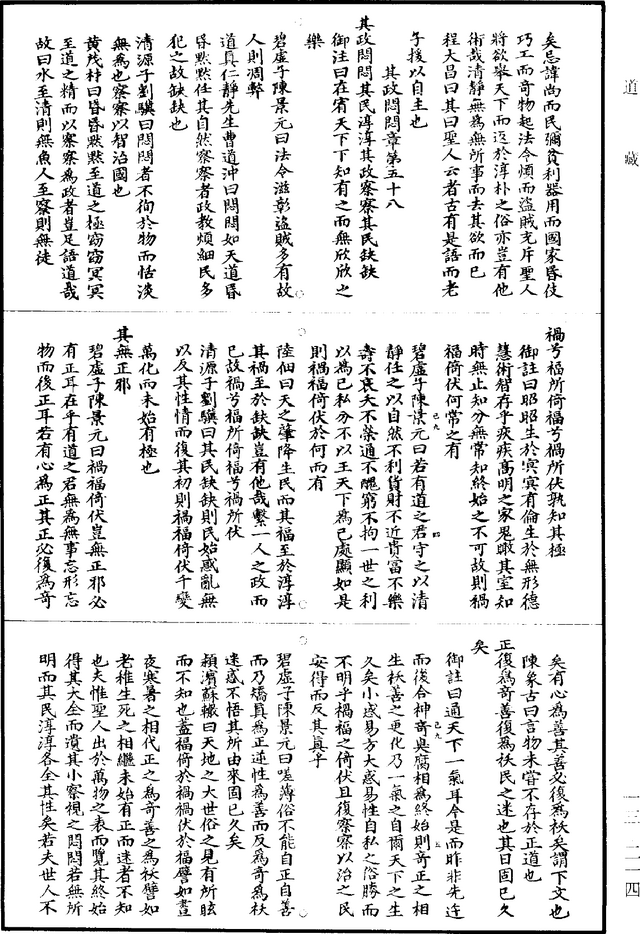 道藏
矣忌諱尚而民彌貧利器用而國家昏伎
巧工而奇物起法令煩而盜賊充斥聖人
將欲舉天下而返於淳朴之俗亦豈有他
術哉清靜無為無所事而去其欲而已
程大昌曰其曰聖人云者古有是語而老
子援以自主也
其政悶悶章第五十八
其政悶悶其民淳淳其政察察其民缺缺
御注曰在宥天下下知有之而無欣欣之
樂
碧虛子陳景元曰法令滋彰盜賊多有故
人則凋弊
道真仁靜先生曹道沖曰悶悶如天道昏
昏默默任其自然察察者政教煩細民多
犯之故缺缺也
清源子劉驥曰悶悶者不徇於物而恬淡
無為也察察以智治國也
黃茂材曰昏昏默默至道之極窈窈冥冥
至道之精而以察察為政者豈足語道哉
故曰水至清則無魚人至察則無徒
禍兮福所倚福兮禍所伏孰知其極
御註曰昭昭生於冥冥有倫生於無形德
慧術智存乎疢疾高明之家鬼瞰其室知
時無止知分無常知終始之不可故則禍
福倚伏何常之有
碧虛子陳景元曰若有道之君守之以清
靜任之以自然不利貨財不近貴富不樂
壽不哀夭不榮通不醜窮不拘一世之利
以為己私分不以王天下為己處顯如是
則禍福倚伏於何而有
陸佃曰天之肇降生民而其福至於淳淳
其禍至於缺缺豈有他哉繫一人之政而
已故禍兮福所倚福兮禍所伏
清源子劉驥曰其民缺缺則民始惑亂無
以反其性情而復其初則禍福倚伏千變
萬化而未始有極也
其無正邪
碧虛子陳景元曰禍福倚伏豈無正邪必
有正耳在乎有道之君無為無事忘形忘
物而後正耳若有心為正其正必復為奇
矣有心為善其善必復為祅矣謂下文也
陳象古曰言物未嘗不存於正道也
正復為奇善復為祅民之迷也其日固已久
矣
御註曰通天下一氣耳今是而昨非先迕
而後合神奇臭腐相為終始則奇正之相
生祅善之更化乃一氣之自爾天下之生
久矣小惑易方大惑易性自私之俗勝而
不明乎禍福之倚伏且復察察以治之民
安得而反其真乎
碧虛子陳景元曰嗟薄俗不能自正自善
而乃矯真為正逆性為善而反為奇為祅
迷惑不悟其所由來固已久矣
潁濱蘇轍曰天地之大世俗之見有所眩
而不知也蓋福倚於禍禍伏於福譬如晝
夜寒暑之相代正之為奇善之為祅譬如
老稚生死之相繼未始有正而迷者不知
也夫惟聖人出於萬物之表而覽其終始
得其大全而遺其小察視之悶悶若無所
明而其民淳淳各全其性矣若夫世人不
一三—二一四